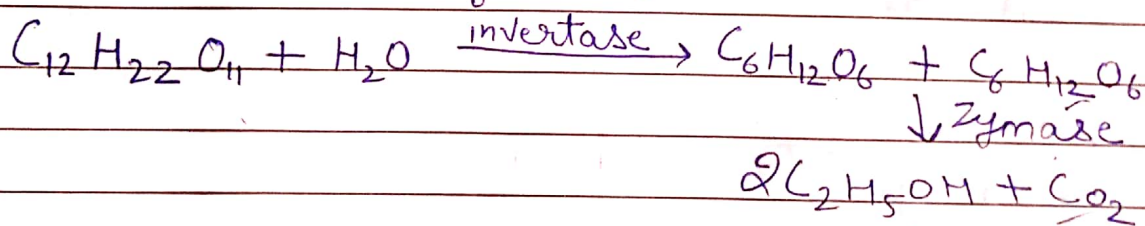 C₁₂H₂₂O₁₁ + H₂O invertase → C₆H₁₂O₆ + C₆H₁₂O₆
↓ Zymase
2C₂H₅OH + CO₂